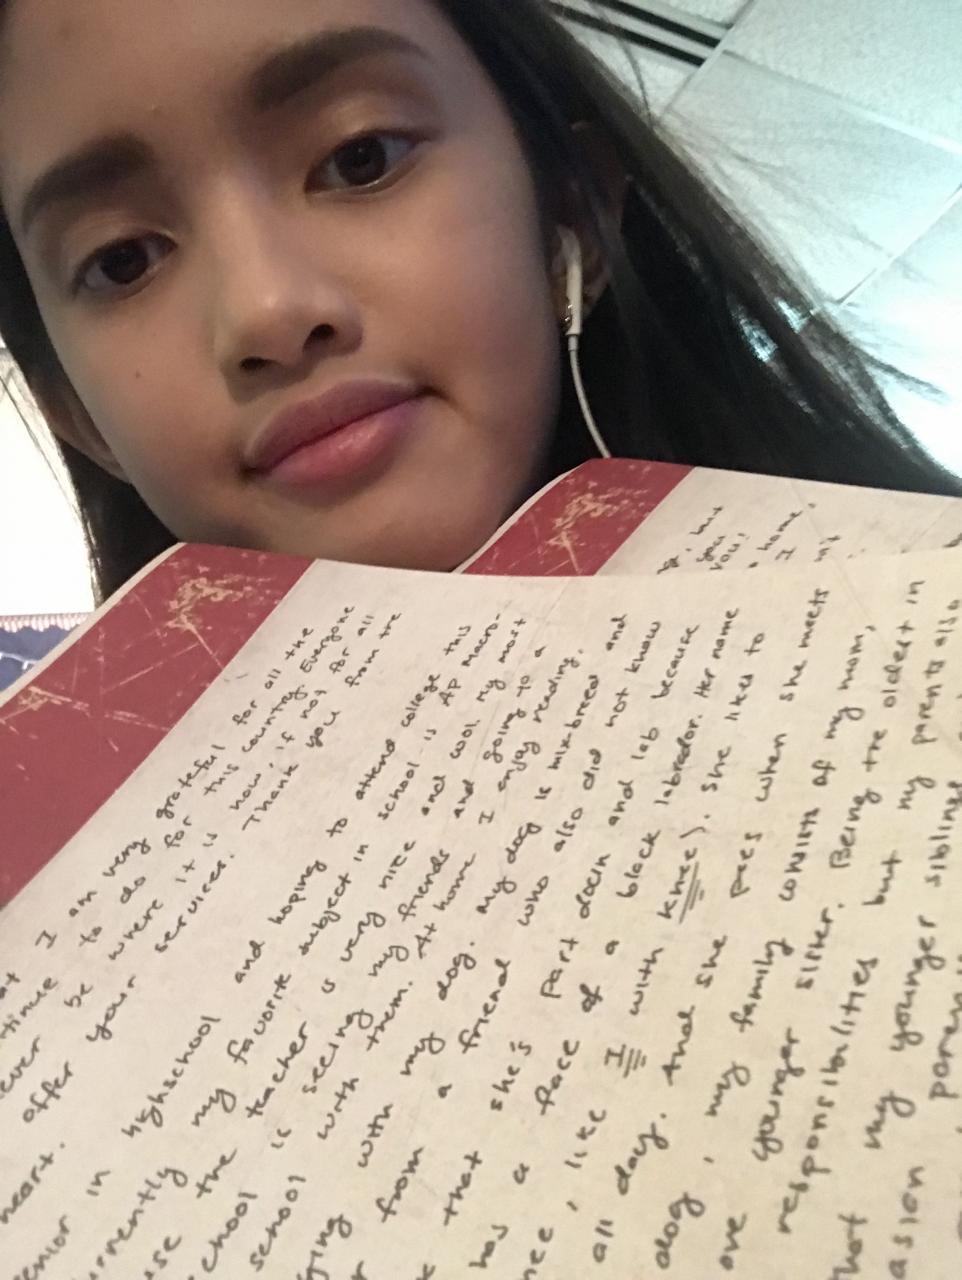 but
you
you!
home,
I
I am very grateful for all the
to do for this country. Everyone
be where it is now, if not for all
offer your services. Thank you from the
heart.
in highschool and hoping to attend college this
my favorite subject in school is AP Macro-
the teacher is very nice and cool. My most
is seeing my friends and going to a
school with them. At home I enjoy reading,
with my dog. My dog is mix-bred and
from a friend who also did not know
that she's part doxin and lab because
has a face of a black labrador. Her name
like I with Khe). She likes to
all day. And she pees when she meets my
dog, my family consists of my mom,
younger sister. Being the oldest in
responsibilities but my parents also
my younger siblings